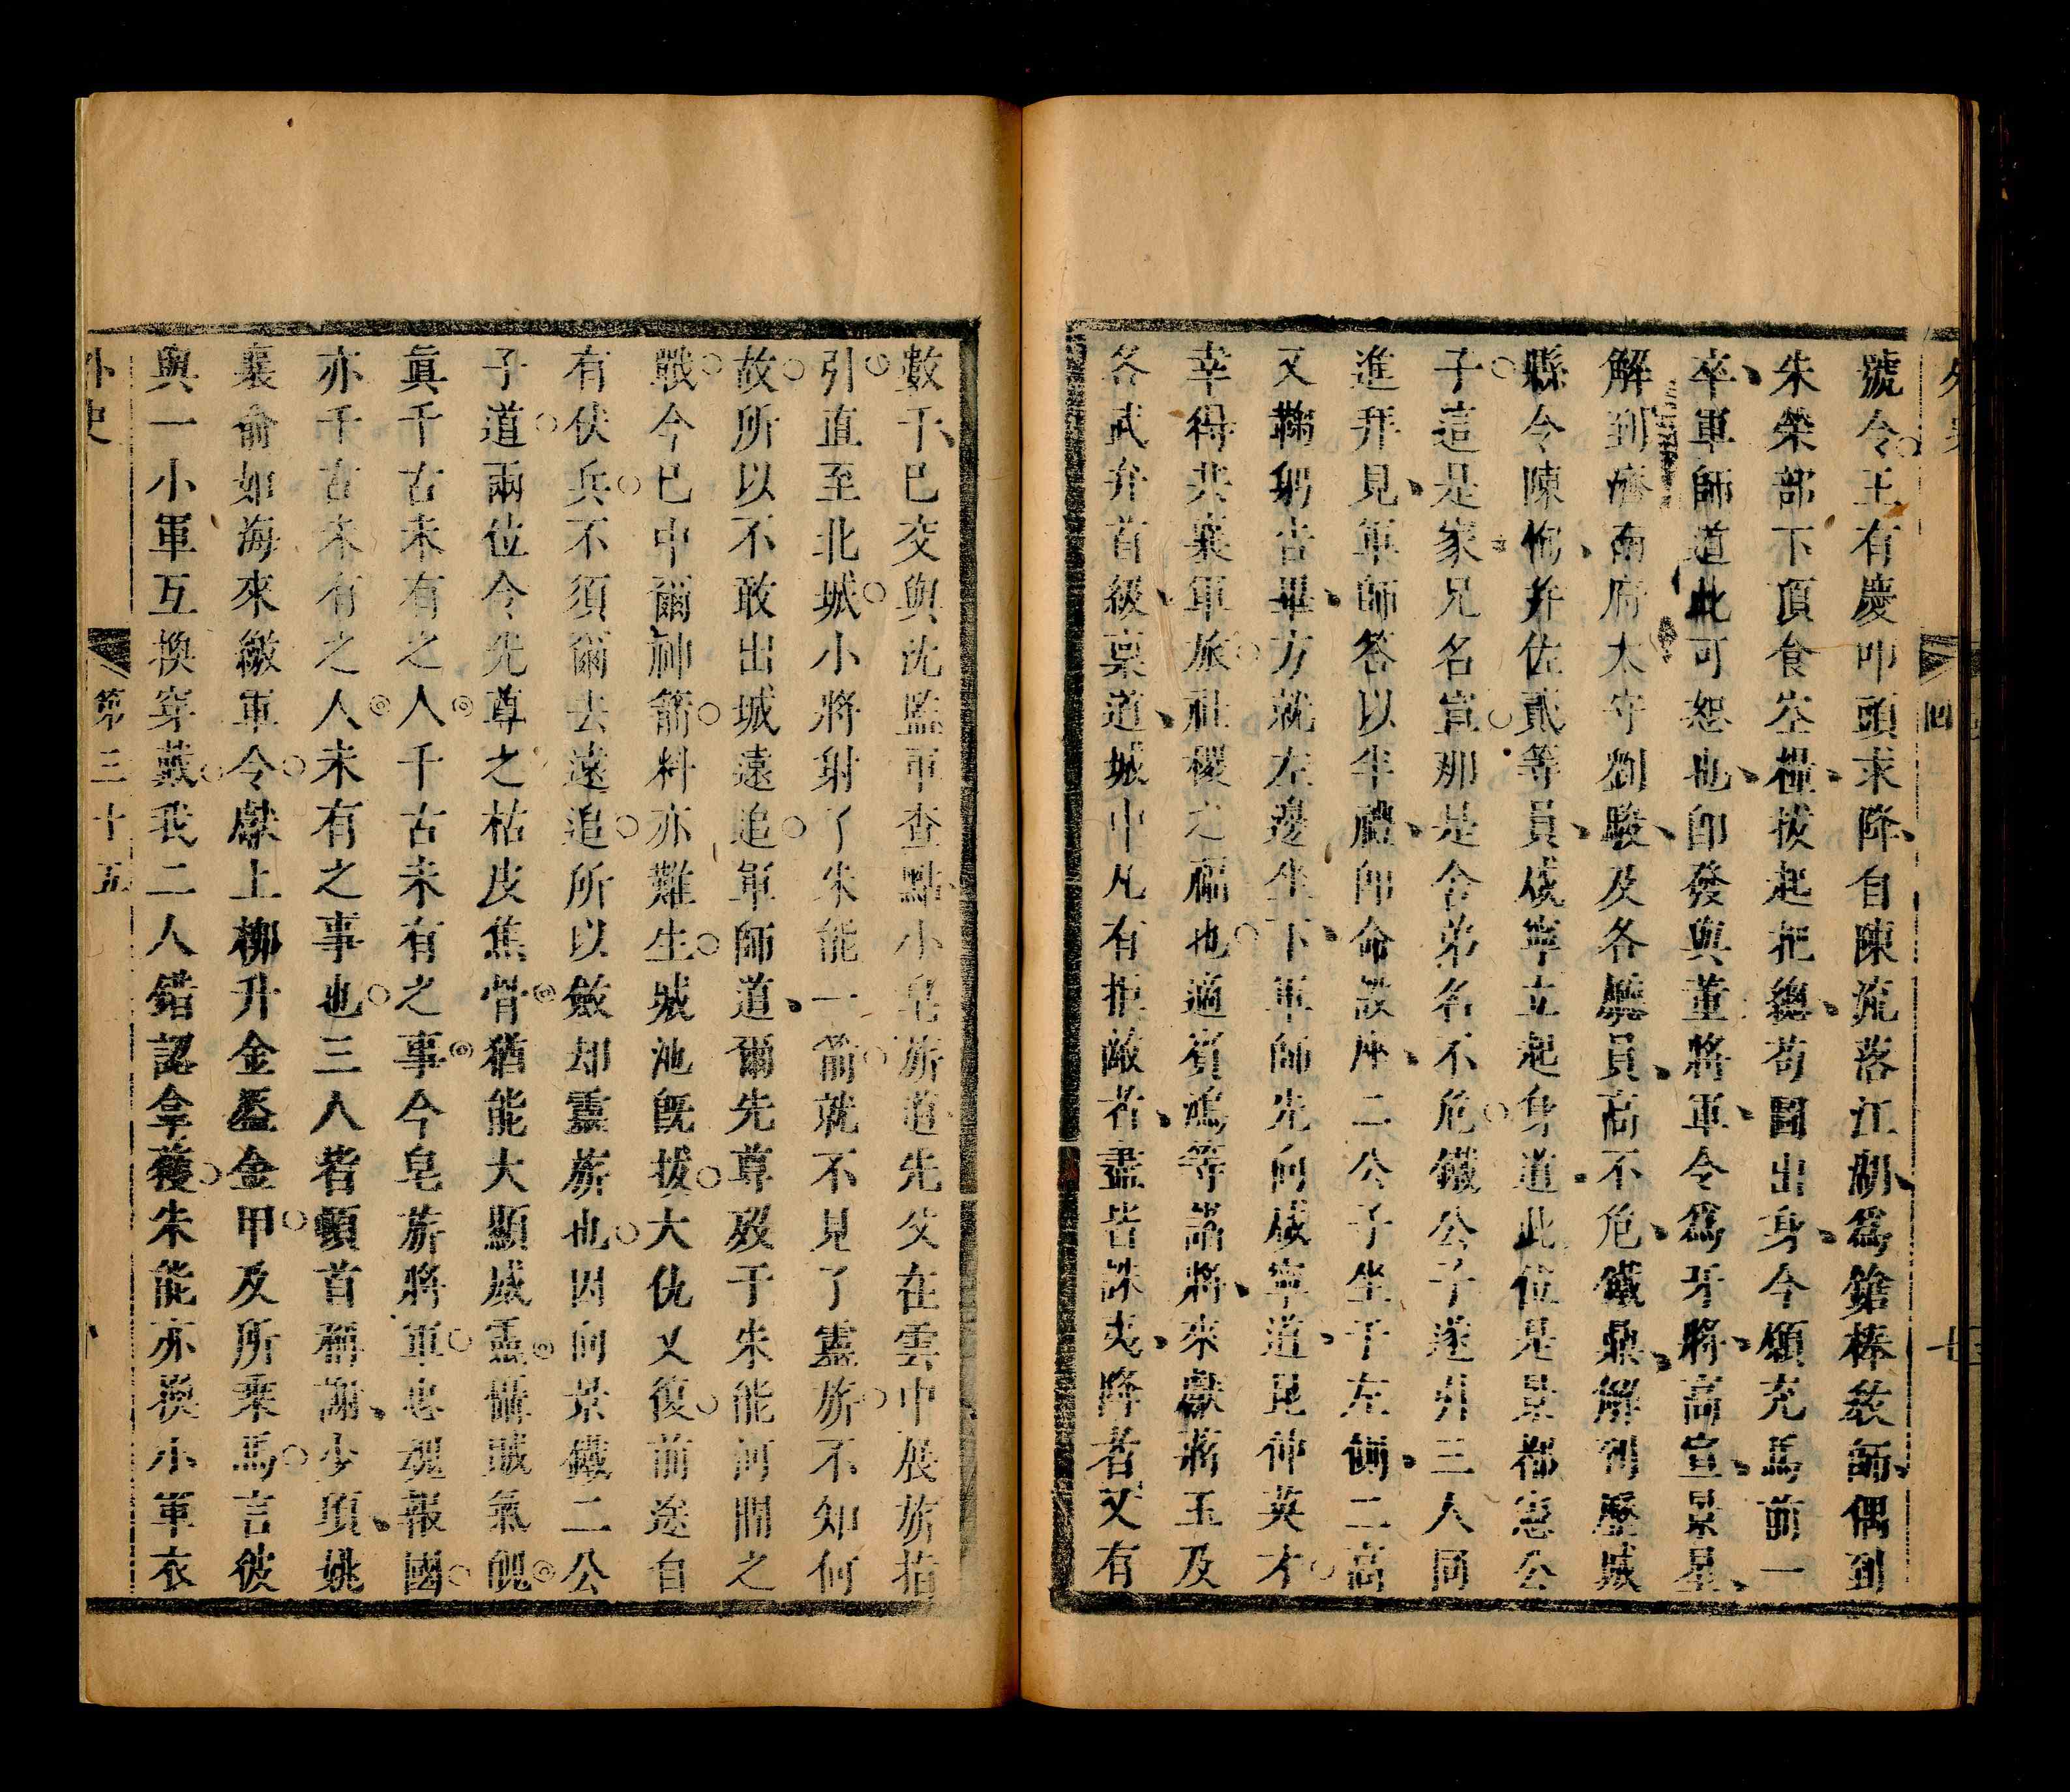 號令王有慶叩頭求降自陳流落江湖爲鎗棒敎師偶到
朱榮部下頂食空糧拔起把總苟圖出身今願充馬前一
卒軍師道此可恕也卽發與董將軍令爲牙將高宣景星
解到濟南府太守劉駿及各廳員高不危鐵鼎解到歷城
縣令陳恂幷佐貳等員咸寧立起身道此位是景都憲公
子這是家兄名宣那是舍弟名不危鐵公子遂引三人同
進拜見軍師答以半禮卽命設座二公子坐于左側二高
又鞠躬告畢方就左邊坐下軍師先向咸寧道昆仲英才
幸得共襄軍旅社稷之福也適賓鴻等諸將來獻蔣玉及
各武弁首級稟道城中凡有拒敵者盡皆誅夷降者又有
數千巳交與沈監軍查點小皂旂道先父在雲中展旂指
引直至北城小將射了朱能一箭就不見了靈旂不知何
故所以不敢出城遠追軍師道爾先尊歿于朱能河間之
戰今巳中爾神箭料亦難生城池旣拔大仇又復前途自
有伏兵不須爾去遠追所以斂却靈旂也因向景鐵二公
子道兩位令先尊之枯皮焦骨猶能大顯威靈懾賊氣魄
眞千古未有之人千古未有之事今皂旂將軍忠魂報國
亦千古未有之人未有之事也三人皆頓首稱謝少頃姚
襄俞如海來繳軍令獻上柳升金盔金甲及所乘馬言彼
與一小軍互換穿戴我二人錯認拿獲朱能亦換小軍衣
外史
第三十五
回
七